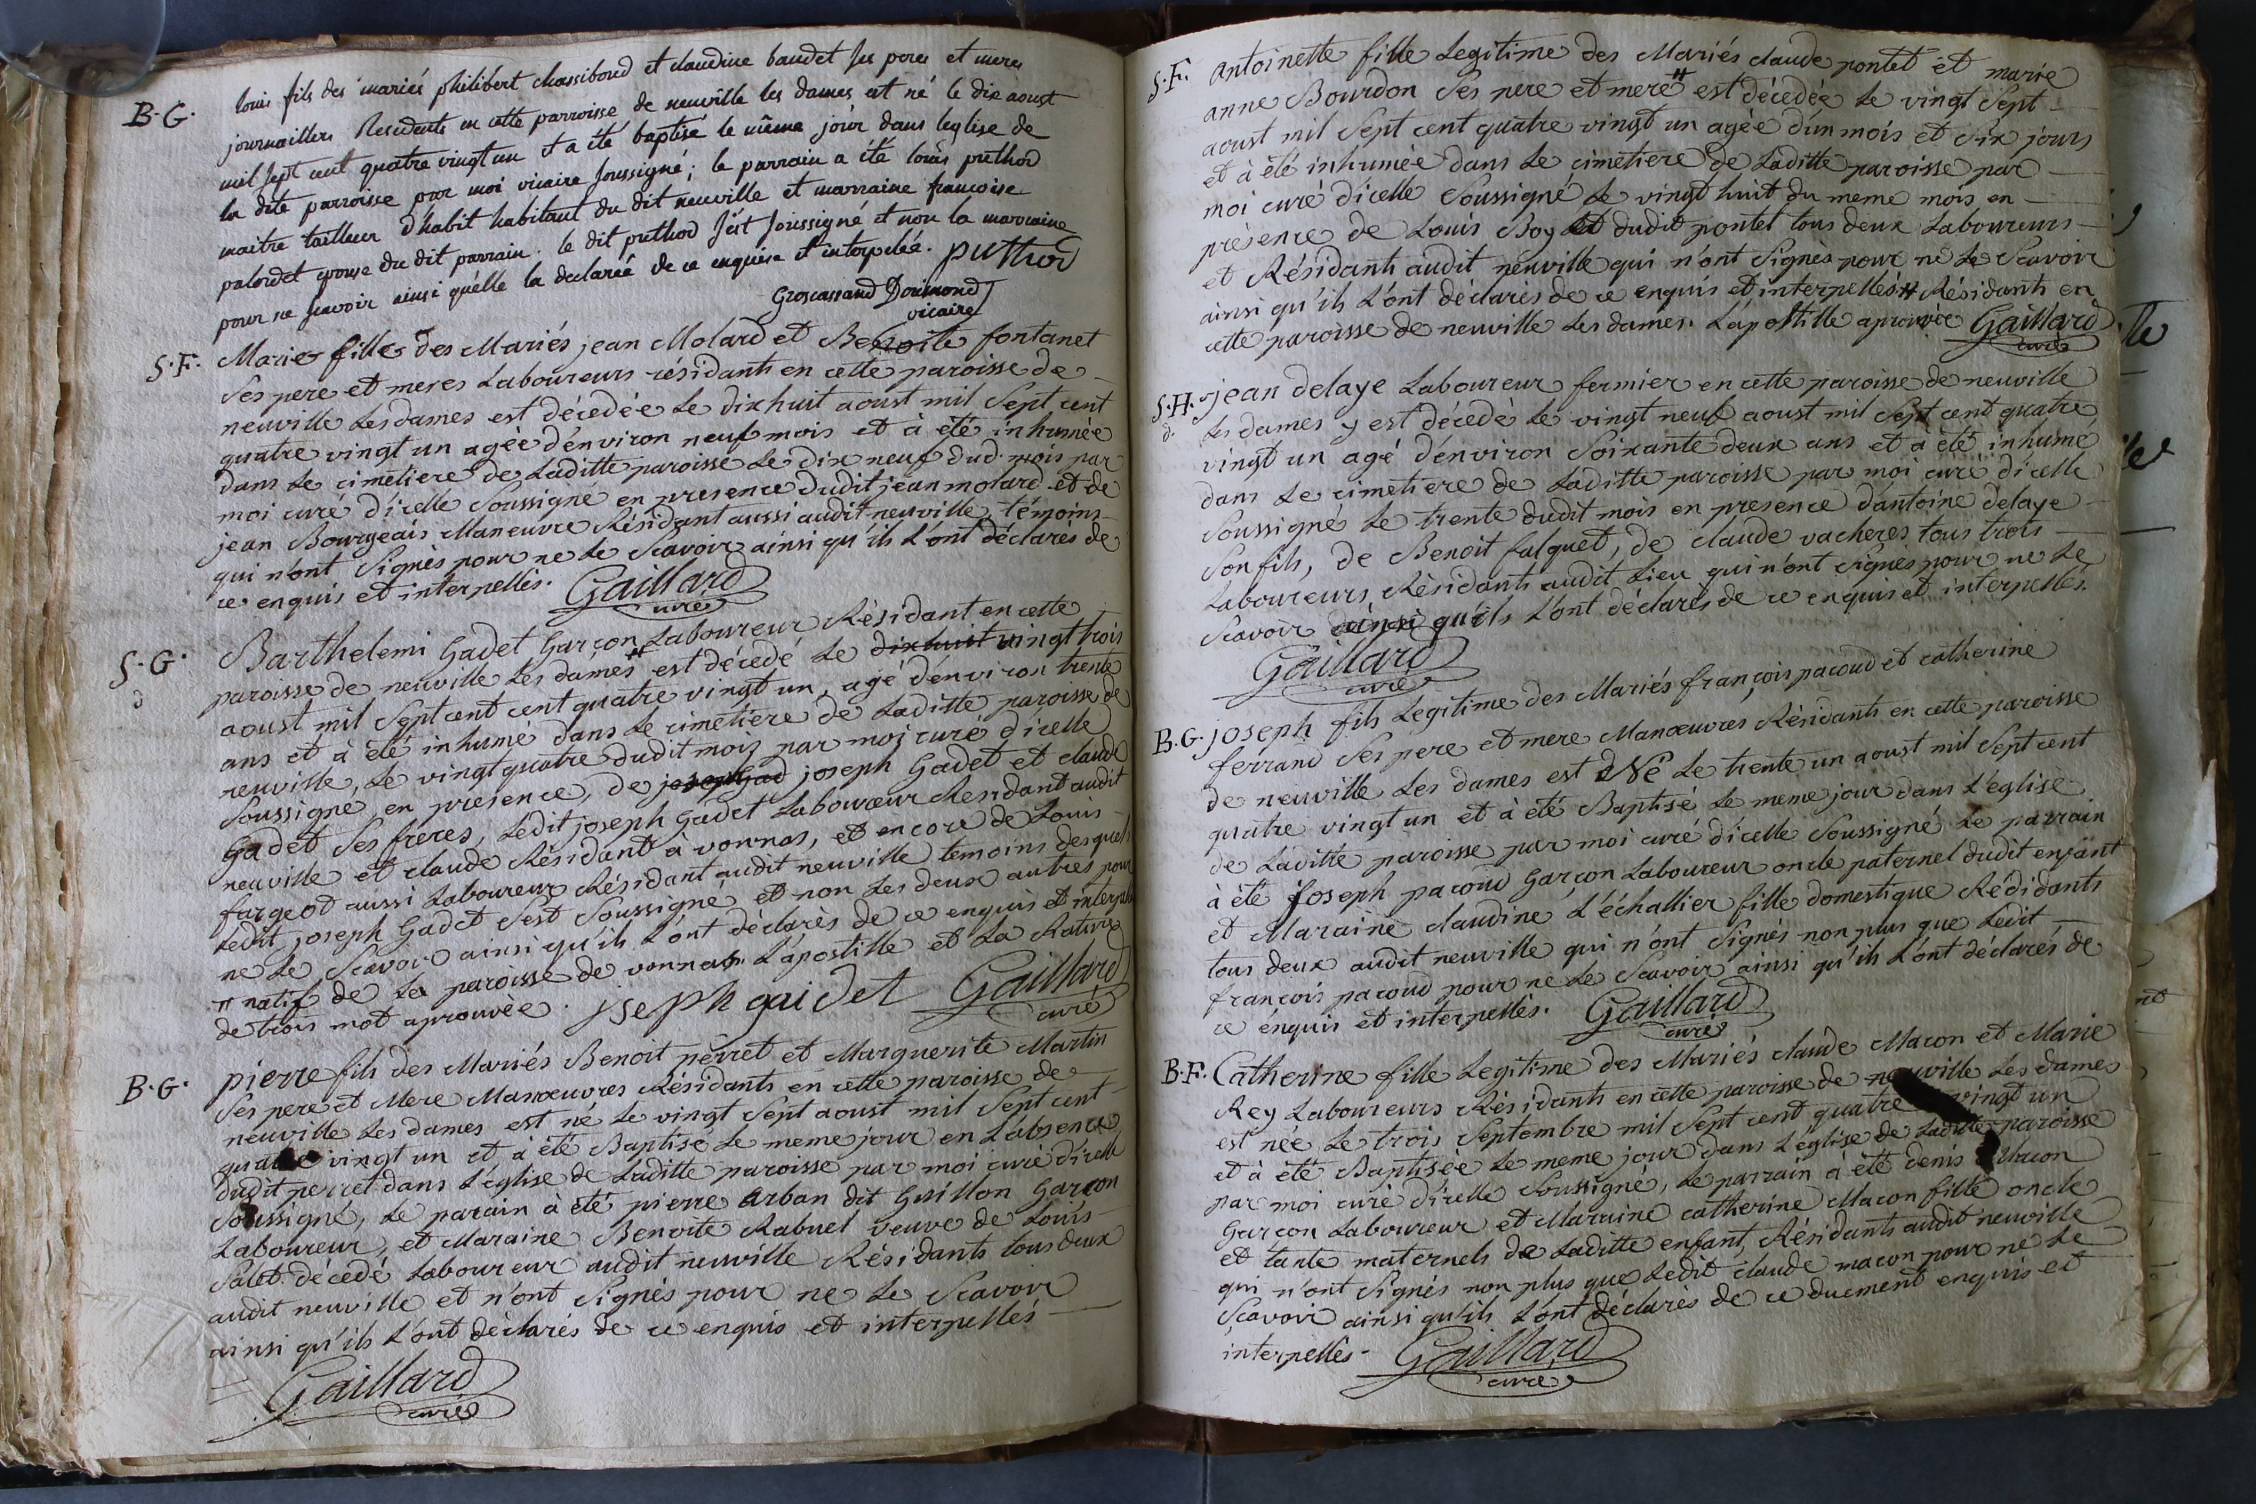 B. G. louis fils des mariés philibert chassiboud et claudine baudet ses peres et meres
journailliers Residents en cette parroisse de neuville les dames est né le dix aoust
mil sept cent quatre vingt un et a été baptisé le même jour dans leglise de
la dite parroisse par moi vicaire soussigné ; le parrain a été louis puthod
maitre tailleur d'habit habitant du dit neuville et marraine francoise
palordet epouse du dit parrain. le dit puthod s'est soussigné et non la marraine
pour ne scavoir ainsi quélle la declaréé de ce enquise et interpelée. puthod
Groscassand Dorimond
vicaire
S. F. Marie fille des Mariés jean Molard et Benoite fontanet
Ses pere et meres Laboureurs résidants en cette paroisse de
neuville Les dames est décedée Le dixhuit aoust mil Sept cent
quatre vingt un agée d'énviron neuf mois et à été inhumée
dans Le cimetiere de Laditte paroisse Le dix neuf dud. mois par
moi curé d'icelle Soussigné en presence dudit jean molard et de
jean Bourgeais Maneuvre Résidant aussi audit neuville témoins
qui n'ont Signés pour ne Le Scavoir ainsi qu'ils L'ont déclarés de
ce enquis et interpellés. Gaillard
curé
S. G. Barthelemi Gadet Garçon Laboureur Résidant en cette
d paroisse de neuville Les dames # est décedé Le dixhuit vingt trois
aoust mil Sept cent cent quatre vingt un, agé d'énviron trente
ans et à été inhumé dans Le cimetiere de Laditte paroisse de
neuville, Le vingt quatre dudit mois par moi curé d'icelle
Soussigné en presence, de joseph Gad joseph Gadet et claude
Gadet Ses freres, Ledit joseph Gadet Laboureur Residant audit
neuville et claude Résidant à vonnas, et encore de Louis
fargeot aussi Laboureur Résidant audit neuville temoins desquels
Ledit joseph Gadet S'est Soussigné et non Les deux autres pour
ne Le Scavoir ainsi qu'ils L'ont déclarés de ce enquis et interpellés
# natif de La paroisse de vonnas. L'apostille et La Rature
de trois mot aprouvée. jseph gaidet Gaillard
curé
B. G. pierre fils des Mariés Benoit perret et Marguerite Martin
Ses pere et Mere Manœuvres Résidants en cette paroisse de
neuville Les dames est né Le vingt Sept aoust mil Sept cent
quatre vingt un et à été Baptisé Le meme jour en L'absence
dudit perret dans L'église de Laditte paroisse par moi curé d'icelle
Soussigné, Le parain à été pierre Arban dit Guillon Garçon
Laboureur, et Maraine Benoite Rabuel veuve de Louis
Salot décedé Laboureur audit neuville Résidants tous deux
audit neuville et n'ont Signés pour ne Le Scavoir
ainsi qu'ils L'ont déclarés de ce enquis et interpellés
Gaillard
curé
S. F. Antoinette fille Legitime des Mariés claude pontet et marie
anne Bourdon Ses pere et mere # est décedée Le vingt Sept
aoust mil Sept cent quatre vingt un agée d'un mois et Six jours
et à été inhumée dans Le cimetiere de Laditte paroisse par
moi curé d'icelle Soussigné Le vingt huit du meme mois en
présence de Louis Boy et dudit pontet tous deux Laboureurs
et Résidants audit neuville qui n'ont Signés pour ne Le Scavoir
ainsi qu'ils L'ont déclarés de ce enquis et interpellés # Résidants en
cette paroisse de neuville Les dames. L'apostille aprouvée Gaillard
curé
S. H. jean delaye Laboureur fermier en cette paroisse de neuville
d. Les dames y est décedé Le vingt neuf aoust mil Sept cent quatre
vingt un agé d'énviron Soixante deux ans et a été inhumé
dans Le cimetiere de Laditte paroisse par moi curé d'icelle
Soussigné Le trente dudit mois en presence d'antoine delaye
Son fils, de Benoit falquet, de claude vacheres tous trois
Laboureurs Résidants audit Lieu qui n'ont Signés pour ne Le
Scavoir ainsi qu'ils L'ont déclarés de ce enquis et interpellés.
Gaillard
curé
B. G. joseph fils Legitime des Mariés françois pacoud et catherine
ferrand Ses pere et mere Manœuvres Résidants en cette paroisse
de neuville Les dames est Né Le trente un aoust mil Sept cent
quatre vingt un et à été Baptisé Le meme jour dans L'église
de Laditte paroisse par moi curé d'icelle Soussigné Le parrain
à été joseph pacoud Garçon Laboureur oncle paternel dudit enfant
et Maraine claudine L'échallier fille domestique Rédidants
tous deux audit neuville qui n'ont Signés non plus que Ledit
françois pacoud pour ne Le Scavoir ainsi qu'ils L'ont déclarés de
ce enquis et interpellés. Gaillard
curé
B. F. Catherine fille Legitime des Mariés claude Macon et Marie
Rey Laboureurs Résidants en cette paroisse de neuville Les dames
est née Le trois Septembre mil Sept cent quatre vingt un
et à été Baptisée Le meme jour dans L'église de Laditte paroisse
par moi curé d'icelle Soussigné, Le parrain à été denis Macon
Garçon Laboureur et Maraine catherine Macon fille oncle
et tante maternels de Laditte enfant, Résidants audit neuville
qui n'ont Signés non plus que Ledit claude macon pour ne Le
Scavoir ainsi qu'ils L'ont déclarés de ce duement enquis et
interpellés. Gaillard
curé